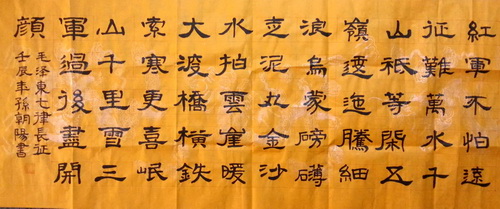 紅軍不怕遠
征難萬水千
山祗等閑五
嶺逶迤騰細
浪烏蒙磅礴
走泥丸金沙
水拍雲崖暖
大渡橋橫鉄
索寒更喜岷
山千里雪三
軍過後盡開
顔
毛泽東七律長征
壬辰年孫朝陽書